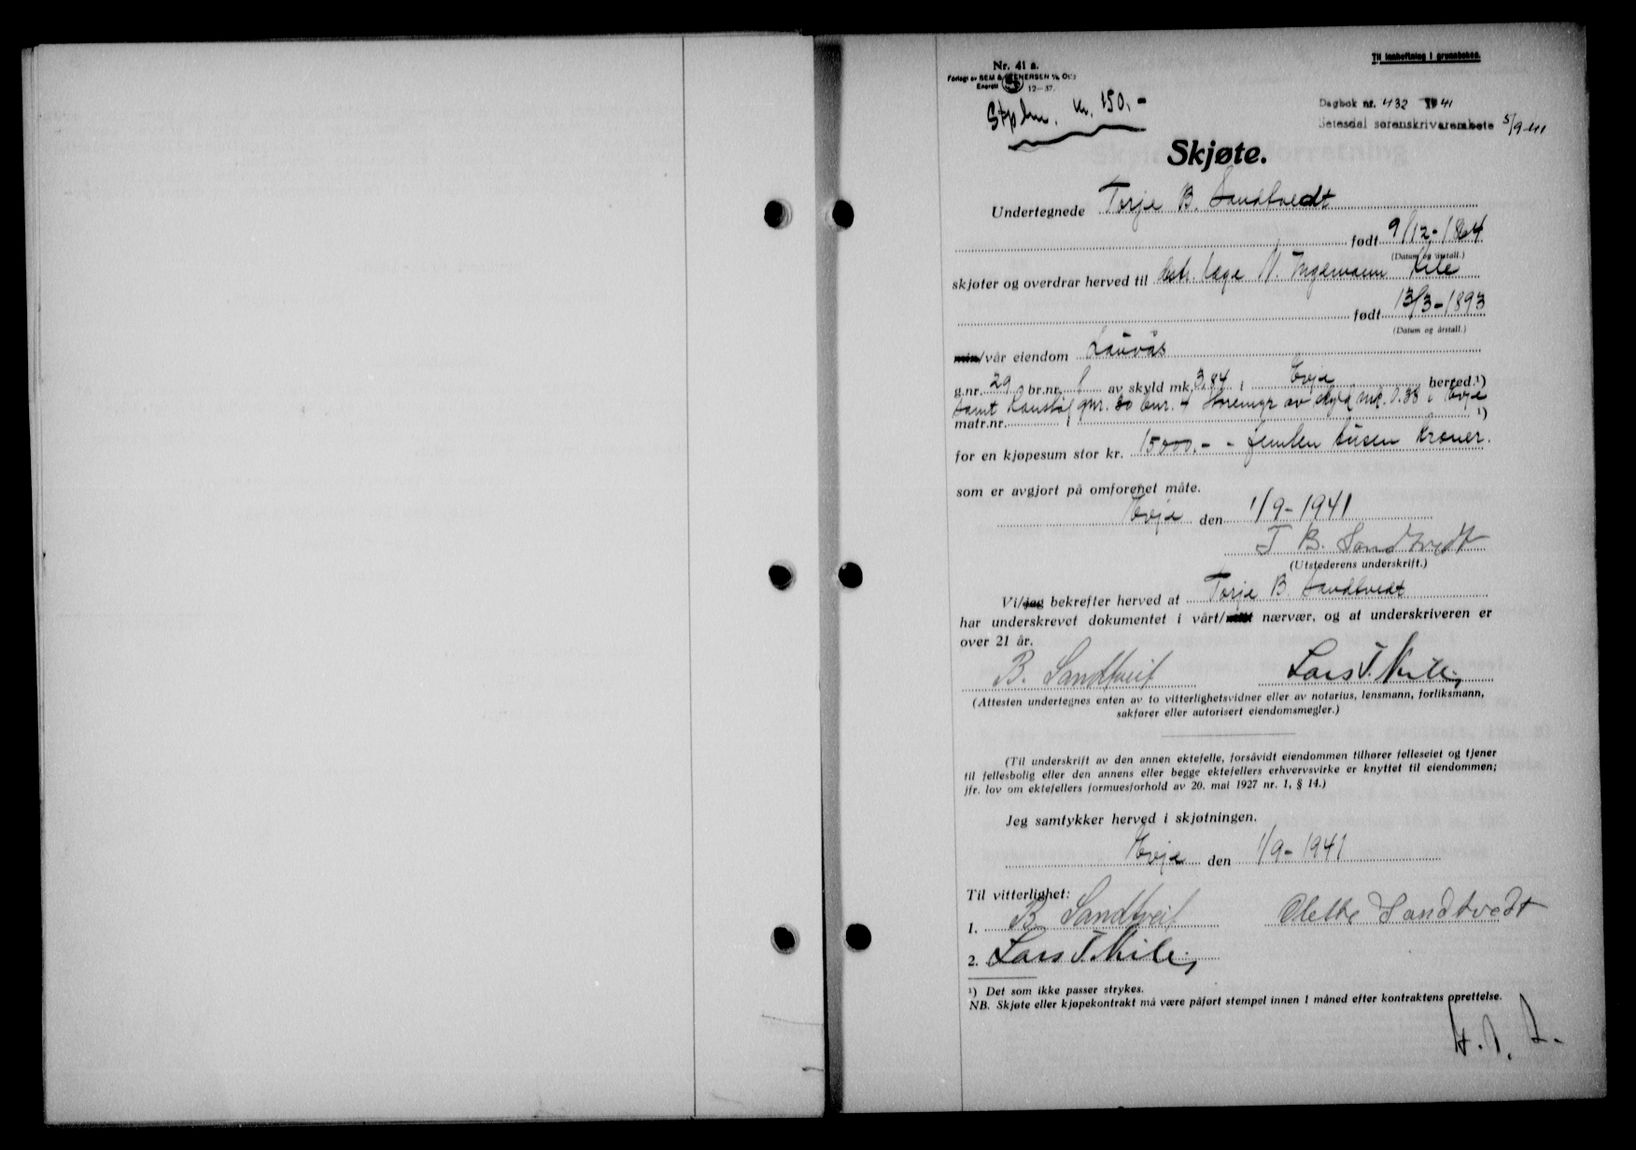 Nr. 41 a.
Forlagt av SEM & STENERSEN A/S, Oslo
Enerett 12—37.
Til innheftning i grunnboken.
Stplm. kr. 150.-
Dagbok nr. 432 1941
Setesdal sorenskrivarembete 5/9-41
Skjøte.
Undertegnede Torje B. Sandtvedt
født 9/12-1864
(Datum og årstall.)
skjøter og overdrar herved til distr. læge N. Ingemann Kile
født 13/3-1893
(Datum og årstall.)
min/vår eiendom Lauvås
g.nr. 29 br.nr. 1 av skyld mk. 3,84 i Evje herred.¹)
samt gnr. 30 bnr. 4 av skyld mk. 0.38 i Evje
matr.nr. i ¹)
for en kjøpesum stor kr. 15000.- - femten tusen kroner.
som er avgjort på omforenet måte.
Evje den 1/9-1941
T B. Sandtvedt
(Utstederens underskrift.)
Vi/jeg bekrefter herved at Torje B. Sandtvedt
har underskrevet dokumentet i vårt/mitt nærvær, og at underskriveren er
over 21 år.
B. Sandtveit Lars T. Kile
(Attesten undertegnes enten av to vitterlighetsvidner eller av notarius, lensmann, forliksmann,
sakfører eller autorisert eiendomsmegler.)
(Til underskrift av den annen ektefelle, forsåvidt eiendommen tilhører felleseiet og tjener
til fellesbolig eller den annens eller begge ektefellers erhvervsvirke er knyttet til eiendommen;
jfr. lov om ektefellers formuesforhold av 20. mai 1927 nr. 1, § 14.)
Jeg samtykker herved i skjøtningen.
Evje den 1/9-1941
Til vitterlighet:
1. B Sandtveit Olette Sandtvedt
2. Lars T. Kile
¹) Det som ikke passer strykes.
NB. Skjøte eller kjøpekontrakt må være påført stempel innen 1 måned efter kontraktens oprettelse.